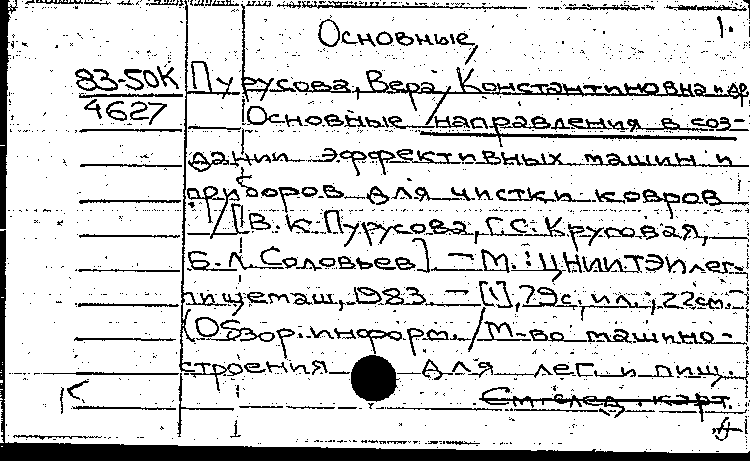 1.
Основные
83-50К Пурусова, Вера Константиновна и др.
4627 Основные направления в соз-
дании эффективных машин и
приборов для чистки ковров
/ [В. К. Пурусова, Г. С. Круговая,
Б. Л. Соловьев] – М.: ЦНИИТЭИлег-
пищемаш, 1983. – [1], 79с., ил.; 22см. –
(Обзор. информ. / М-во машино-
строения для лег. и пищ.
См. след. карт.